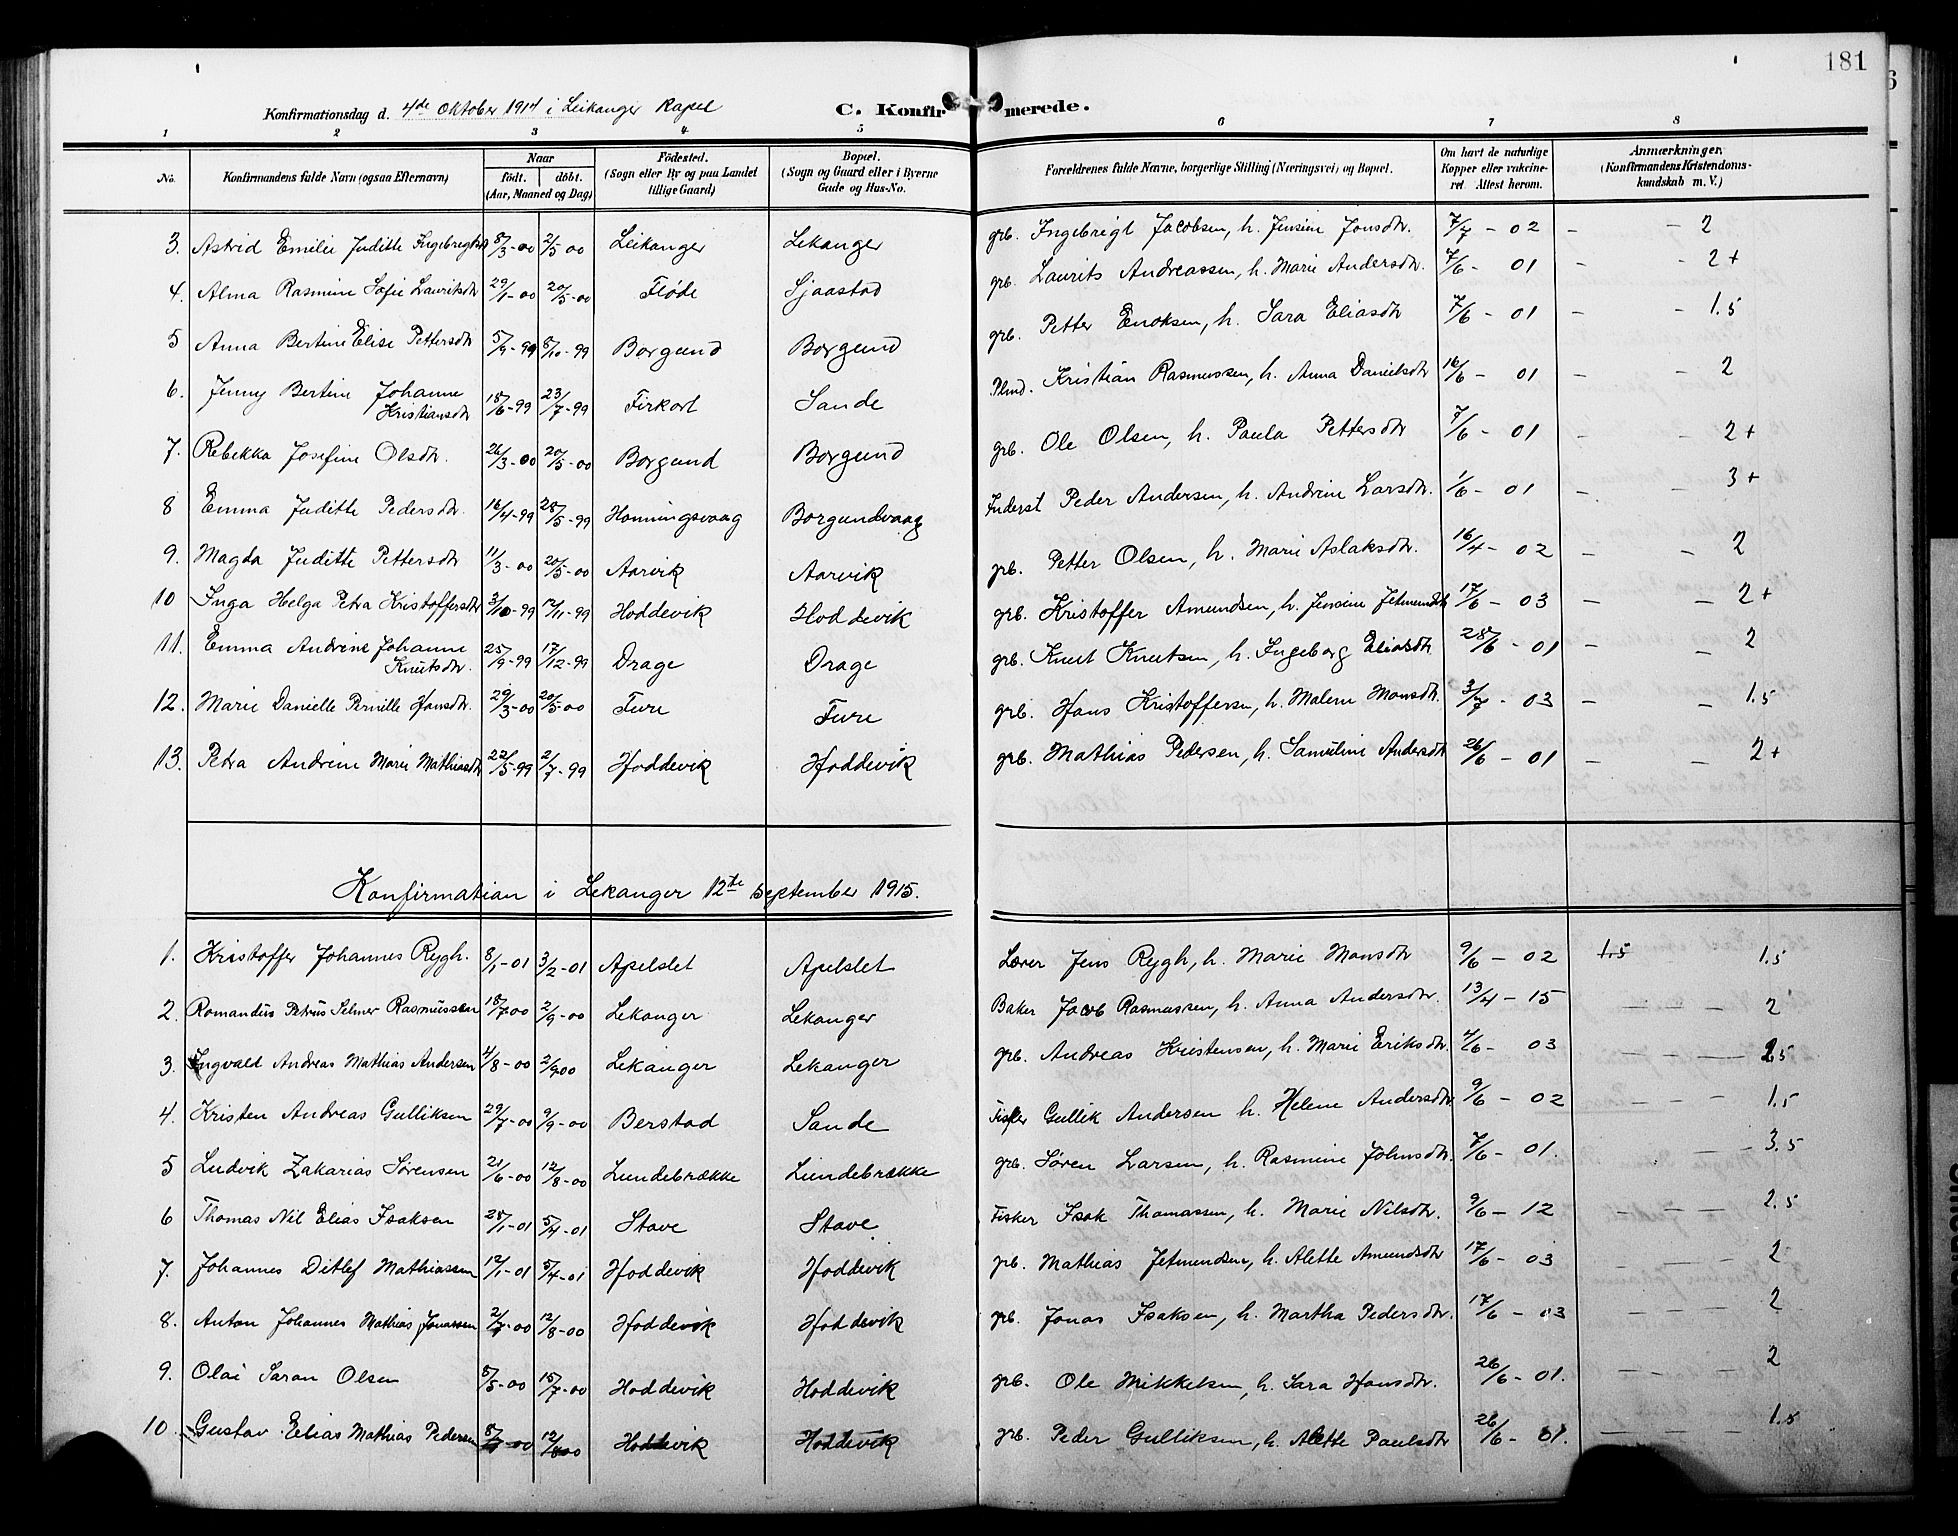 181
Konfirmationsdag d. 4de Oktober 1914 i Leikanger Kapel
C. Konfirmerede.
1 2 3 4 5 6 7 8
No. Konfirmandens fulde Navn (ogsaa Efternavn) Naar født. døbt. (Aar, Maaned og Dag) Fødested. (Sogn eller By og paa Landet tillige Gaard) Bopæl. (Sogn og Gaard eller i Byerne Gade og Hus-No. Forældrenes fulde Navne, borgerlige Stilling (Næringsvei) og Bopæl. Om havt de naturlige Kopper eller vakcineret. Attest herom. Anmærkninger. (Konfirmandens Kristendomskundskab m. V.)
3. Astrid Emilie Juditte Ingebregtsdtr 8/3-00 2/5 00 Leikanger Lekanger grb. Ingebrigt Jacobsen, h. Jensine Jonsdtr. 7/7 - 02 - - 2
4. Alma Rasmine Sofie Lauritsdtr 29/1-00 20/5-00 Fløde Sjaastad grb. Laurits Andreassen, h. Marie Andersdtr. 7/6 - 01 - - 2+
5 Anna Bertine Elise Pettersdtr 5/9-99 8/10-99 Borgund Borgund grb. Petter Enoksen, h. Sara Eliasdtr 7/6 - 01 - - 1.5
6. Jenny Bertine Johanne Kristiansdtr 18/6-99 23/7-99 Firkort Sande Plmd. Kristian Rasmussen, h. Anna Danielsdtr 16/6 - 01 - - 2
7. Rebekka Josefine Olsdtr. 26/3-00 20/5-00 Borgund Borgund grb. Ole Olsen, h. Paula Pettersdtr 7/6 - 01 - - 2+
8 Emma Juditte Pedersdtr. 16/4-99 28/5-99 Honningsvaag Borgundvaag Inderst Peder Andersen, h. Andrine Larsdtr. 1/6 - 01 - - 3+
9. Magda Juditte Pettersdtr 11/3-00 20/5-00 Aarvik Aarvik grb. Petter Olsen, h. Marie Aslaksdtr. 16/4 - 02 - - 2
10 Inga Helga Petra Kristoffersdtr 3/10-99 12/11-99 Hoddevik Hoddevik grb. Kristoffer Amundsen, h. Jensine Jetmundsdtr 17/6 - 03 - - 2+
11. Emma Andrine Johanne Knutsdtr. 25/9-99 17/12-99 Drage Drage grb. Knut Knutsen, h. Ingeborg Eliasdtr 28/6 - 01 - - 2
12. Marie Danielle Pernille Hansdtr. 29/3-00 20/5-00 Fure Fure grb. Hans Kristoffersen, h. Malene Monsdtr. 3/7 - 03 - - 1.5
13. Petra Andrine Marie Mathiasdtr 22/5-99 2/7-99 Hoddevik Hoddevik grb. Mathias Pedersen, h. Samuline Andersdtr 26/6 - 01 - - 2+
Konfirmation i Lekanger 12te September 1915.
1. Kristoffer Johannes Rygh. 8/1-01 3/2-01 Apelslet Apelslet Lærer Jens Rygh, h. Marie Monsdtr 9/6 - 02 1.5 - - 1.5
2. Romandus Petrus Selmer Rasmussen 18/7 00 2/9-00 Lekanger Lekanger Baker Jacob Rasmussen, h. Anna Andersdtr. 13/4 - 15 - - - 2
3. Ingvald Andreas Mathias Andersen 4/8-00 2/9 00 Lekanger Lekanger grb. Andreas Kristensen, h. Marie Eriksdtr. 4/6 - 03 - - - 2.5
4. Kristen Andreas Gulliksen 29/7-00 9/9-00 Berstad Sande Fisker Gullik Andersen h. Helene Andersdtr 9/6 - 02 - - - 1.5
5 Ludvik Zakarias Sørensen 21/6-00 12/8-00 Lundebrække Lundebrække grb. Søren Larsen, h. Rasmine Johnsdtr. 7/6 - 01. - - - 3.5
6 Thomas Nil Elias Isaksen 28/1-01 5/4-01 Stave Stave. Fisker Isak Thomassen, h. Marie Nilsdtr. 9/6 - 12 - - - 2.5
7. Johannes Ditlef Mathiassen 12/1-01 5/4-01 Hoddevik Hoddevik grb. Mathias Jetmundsen, h. Alette Amundsdtr 17/6 - 03 - - - 2
8. Anton Johannes Mathias Jonassen 2/7-00 12/8-00 Hoddevik Hoddevik grb. Jonas Isaksen, h. Martha Pedersdtr. 17/6 - 03 - - - 2
9. Olai Saran Olsen 8/5-00 15/7-00 Hoddevik Hoddevik grb. Ole Mikkelsen, h. Sara Hansdtr. 26/6 - 01. - - - 2
10. Gustav Elias Mathias Pedersen 8/7-00 12/8 00 Hoddevik Hoddevik grb. Peder Gulliksen, h. Alette Paulsdtr 26/6 - 01. - - - 1.5